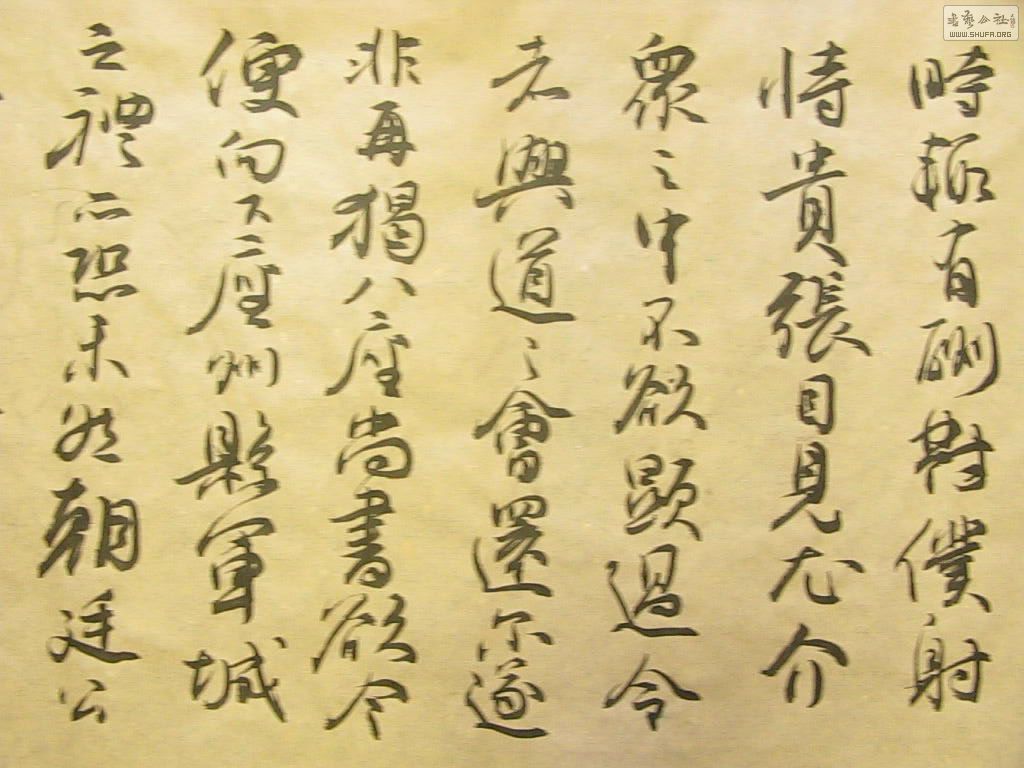 書藝公社
WWW.SHUFA.ORG
時輒有酬對僕射
恃貴張目見尤介
衆之中不欲顯過今
者興道之會還尔遂
非再猲八座尚書欲令
便向下座州縣軍城
之禮亦恐未然朝廷公